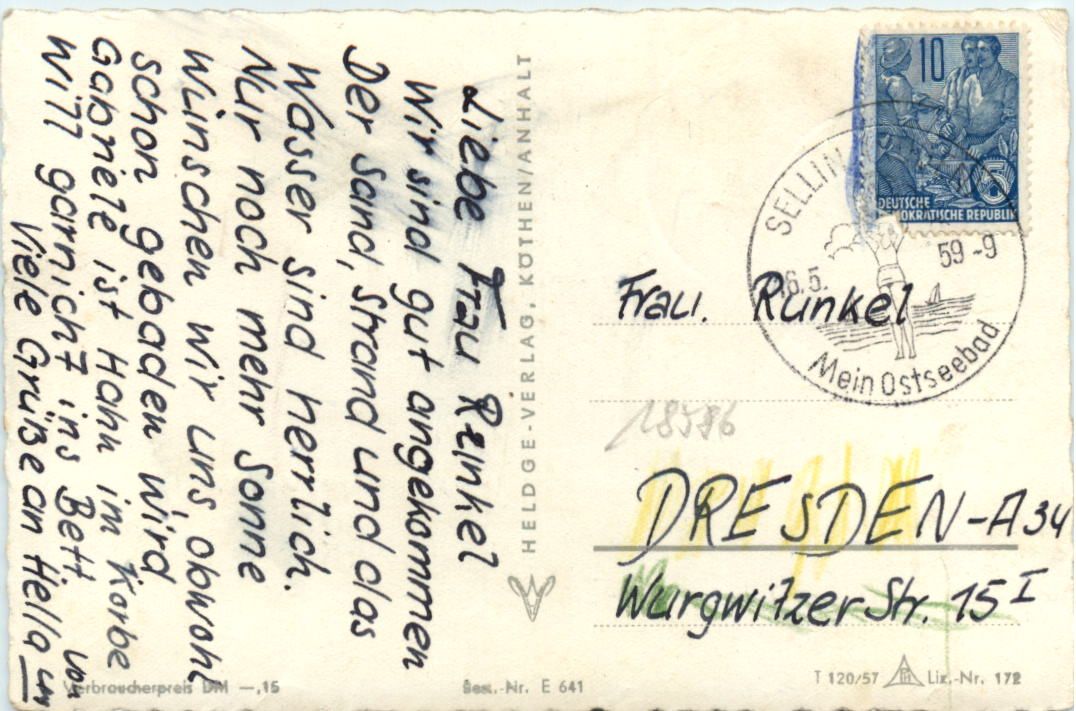 Liebe Frau Runkel
Wir sind gut angekommen
Der Sand, Strand und das
Wasser sind herrlich.
Nur noch mehr Sonne
Wünschen wir uns, obwohl
schon gebaden wird
Gabriele ist Hahn im Korbe
will garnicht ins Bett
Viele Grüße an Hella
von
HELDGE-VERLAG, KÖTHEN/ANHALT
Verbraucherpreis DM —,15
Bes.-Nr. E 641
10
5
DEUTSCHE
DEMOKRATISCHE REPUBLIK
SELLIN
6.5.
59 -9
Mein Ostseebad
Frau. Runkel
18586
DRESDEN-A34
Wurgwitzer Str. 15 I
T 120/57
Liz.-Nr. 172